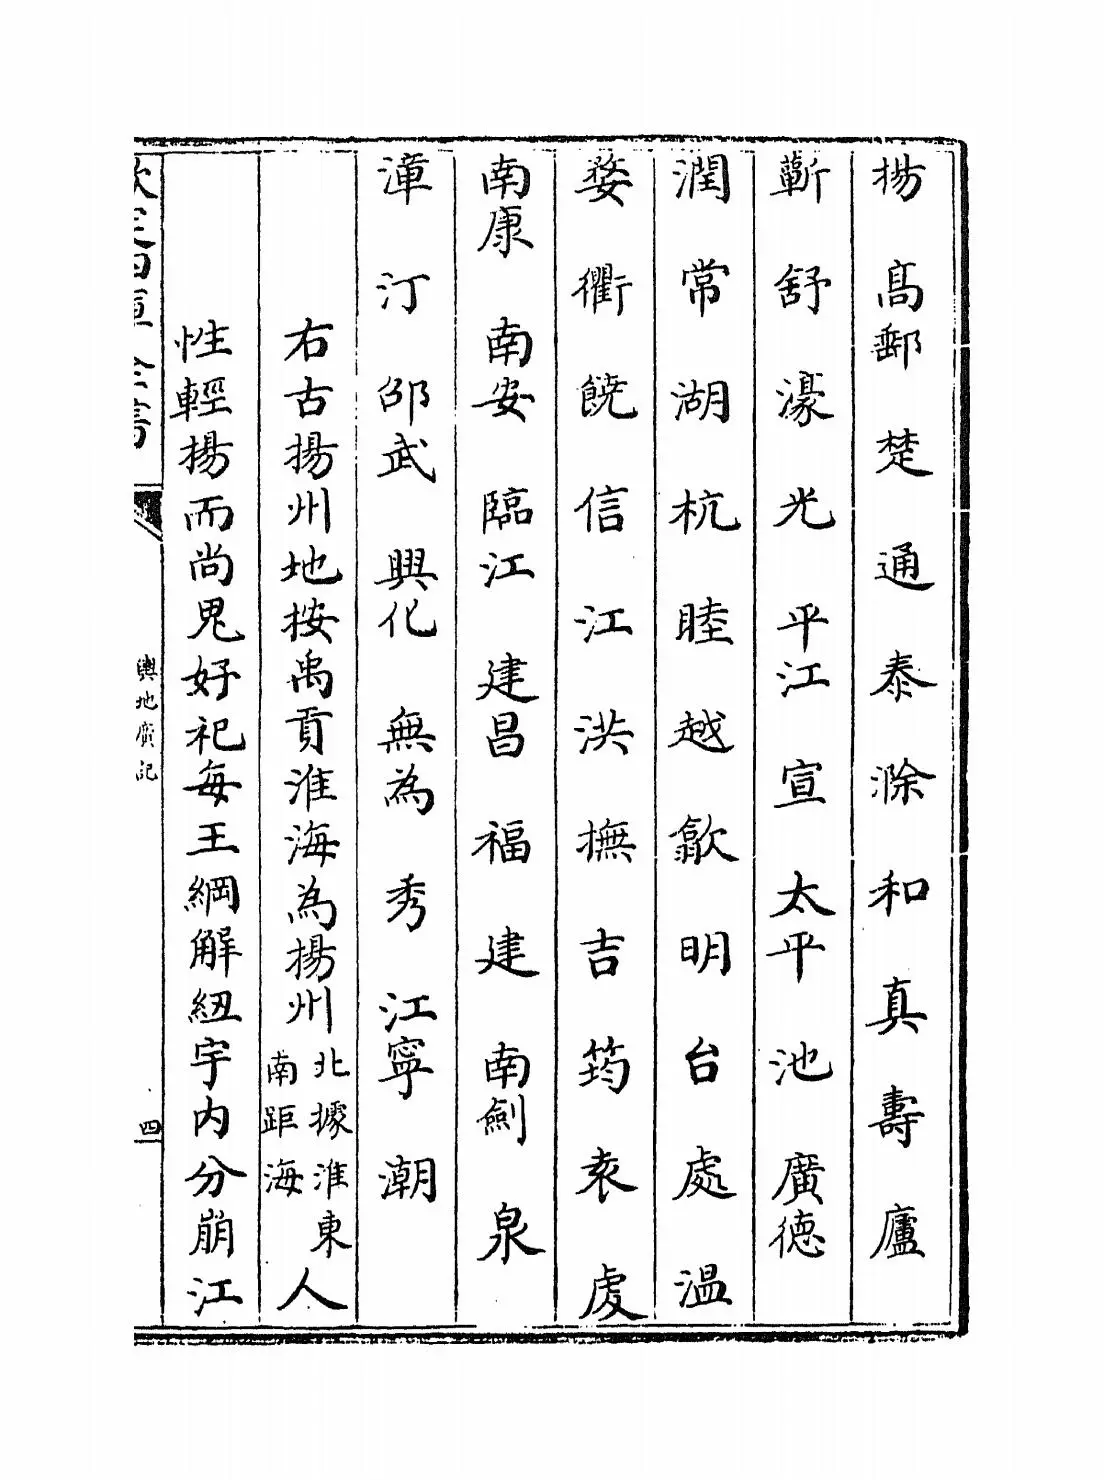 揚 髙郵 楚 通 泰 滁 和 真 壽 廬
蘄 舒 濠 光 平江 宣 太平 池 廣德
潤 常 湖 杭 睦 越 歙 明 台 處 温
婺 衢 饒 信 江 洪 撫 吉 筠 袁 虔
南康 南安 臨江 建昌 福 建 南劍 泉
漳 汀 邵武 興化 無為 秀 江寧 潮
右古揚州地按禹貢淮海為揚州北據淮東南距海人
性輕揚而尚鬼好祀每王綱解紐宇内分崩江
欽定四庫全書
輿地廣記
四